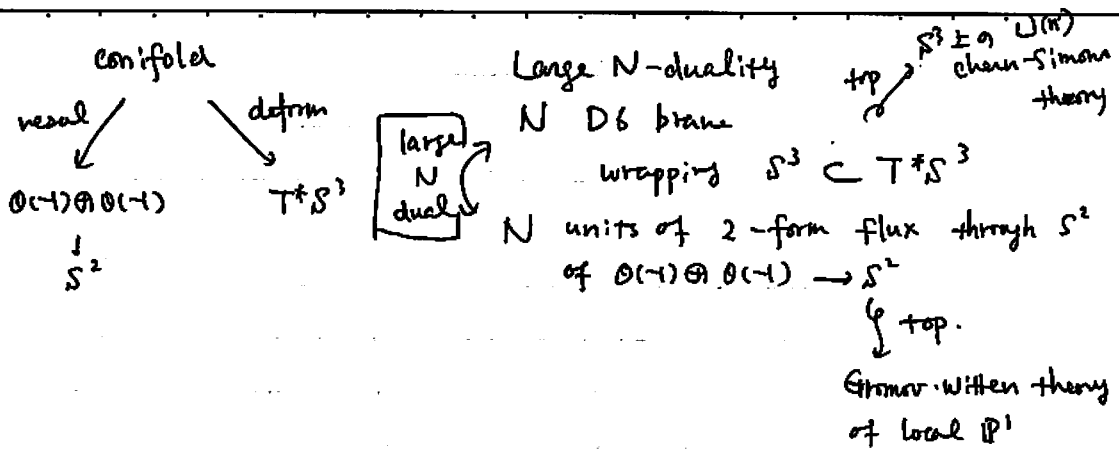 conifold
resol
deform
O(-1)⊕O(-1)
↓
S²
T*S³
large
N
dual
Large N-duality
N D6 brane
wrapping S³ ⊂ T*S³
top
S³上の U(N)
Chern-Simons
theory
N units of 2-form flux through S²
of O(-1)⊕O(-1) → S²
top.
Gromov-Witten theory
of local ℙ¹